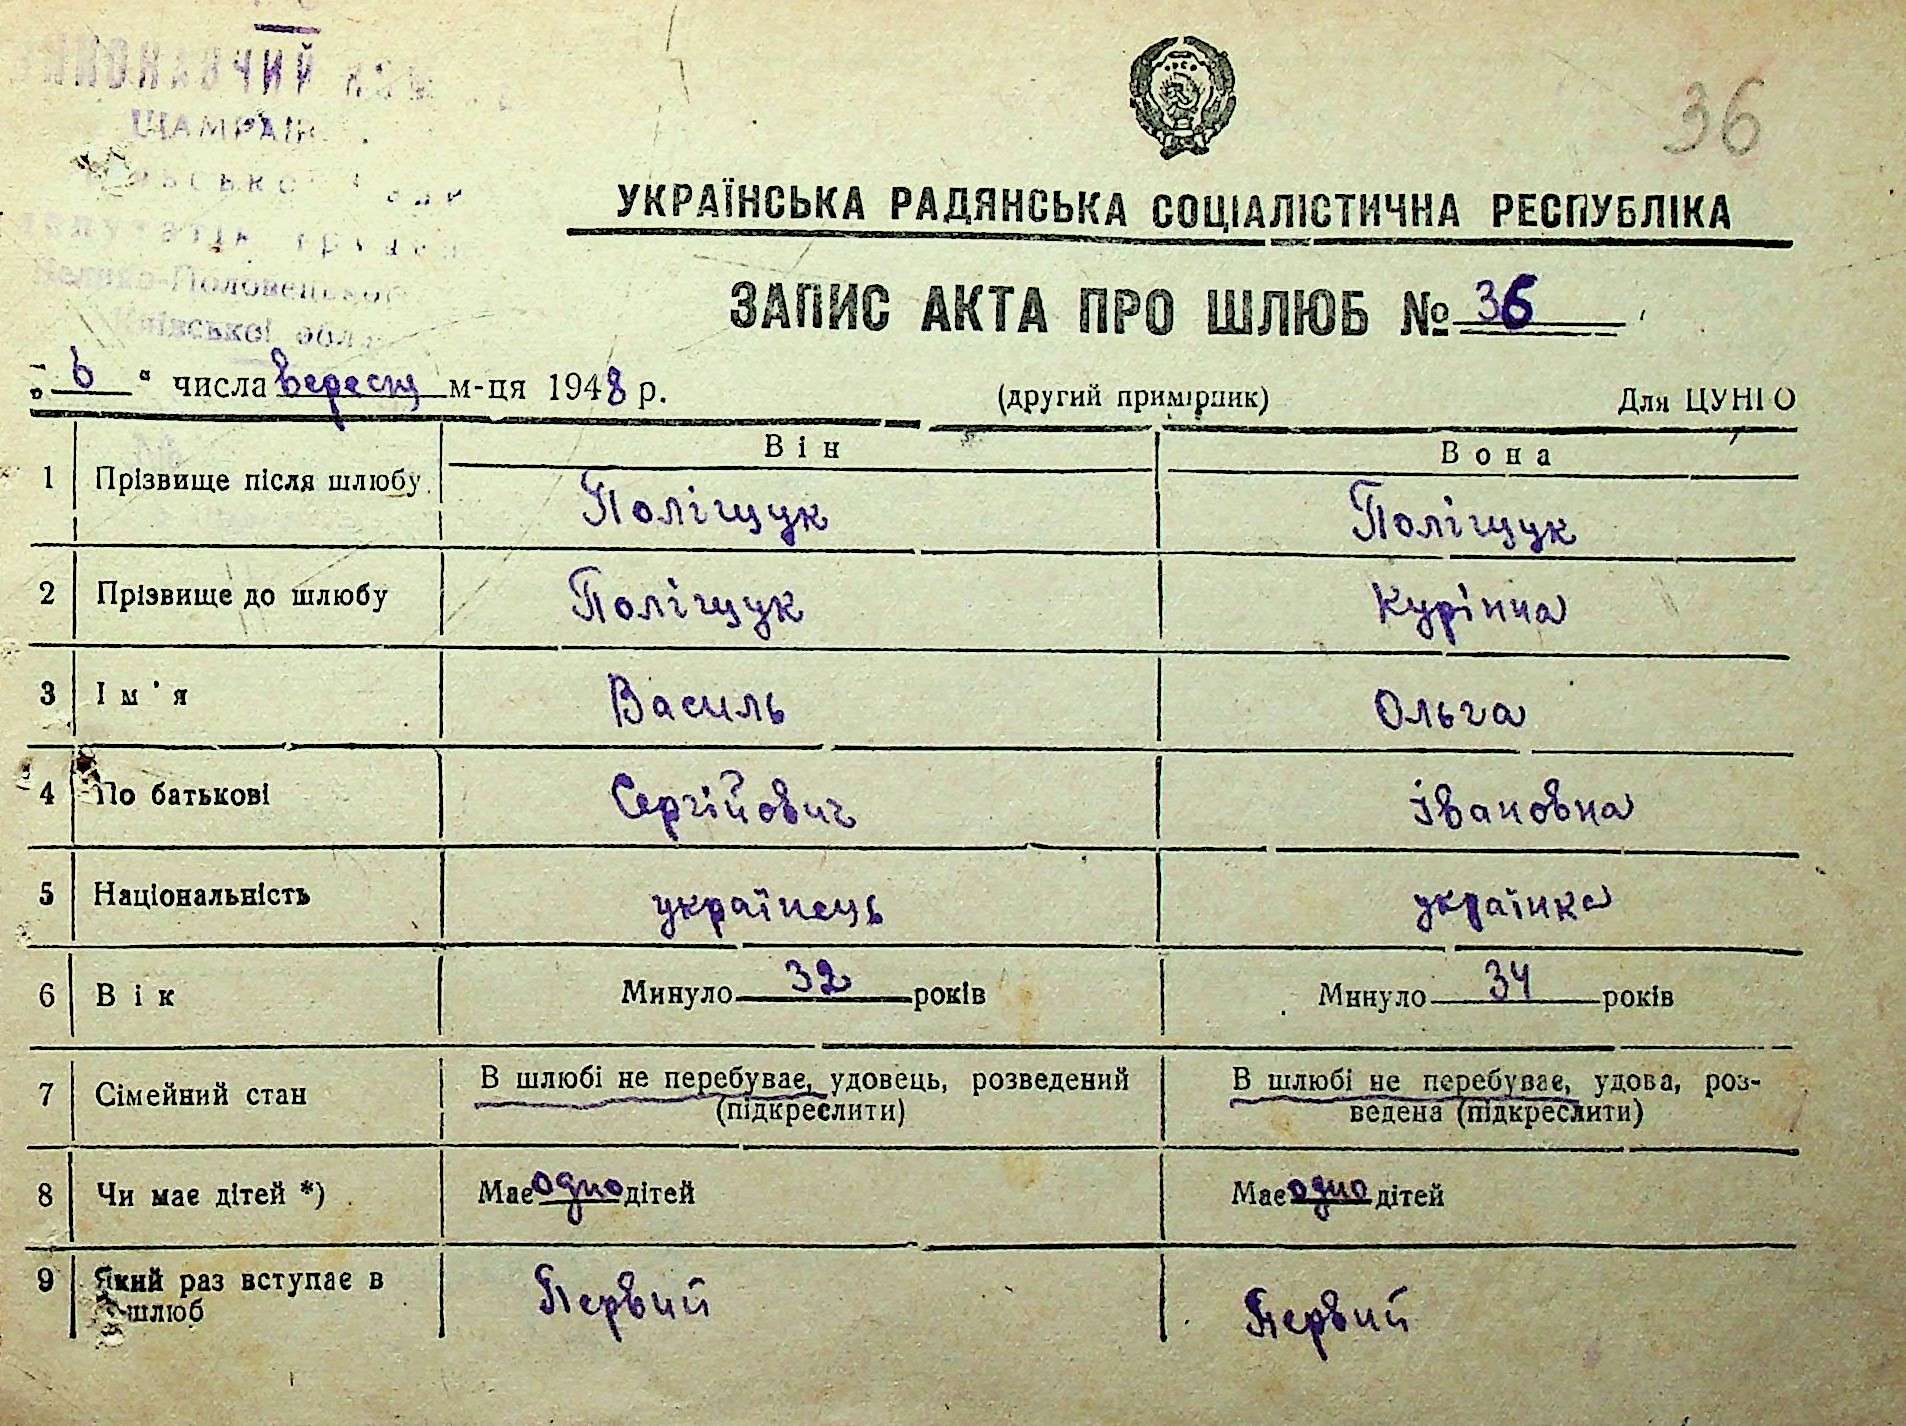 36
ШАМРАЇВ
Велико-Половецького
Київської обл
УКРАЇНСЬКА РАДЯНСЬКА СОЦІАЛІСТИЧНА РЕСПУБЛІКА
ЗАПИС АКТА ПРО ШЛЮБ № 36
„ 6 “ числа вересня м-ця 1948 р. (другий примірник) Для ЦУНГО
Він Вона
1 Прізвище після шлюбу Поліщук Поліщук
2 Прізвище до шлюбу Поліщук Курінна
3 Ім'я Василь Ольга
4 По батькові Сергійович Івановна
5 Національність українець українка
6 Вік Минуло 32 років Минуло 34 років
7 Сімейний стан В шлюбі не перебуває, удовець, розведений (підкреслити) В шлюбі не перебуває, удова, роз-
ведена (підкреслити)
8 Чи має дітей *) Має одно дітей Має одно дітей
9 Який раз вступає в шлюб Первий Первий